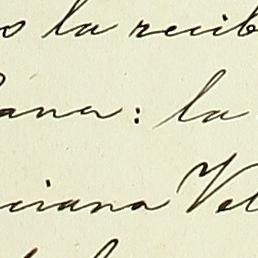 o la recib
ana: la
iciana Vel